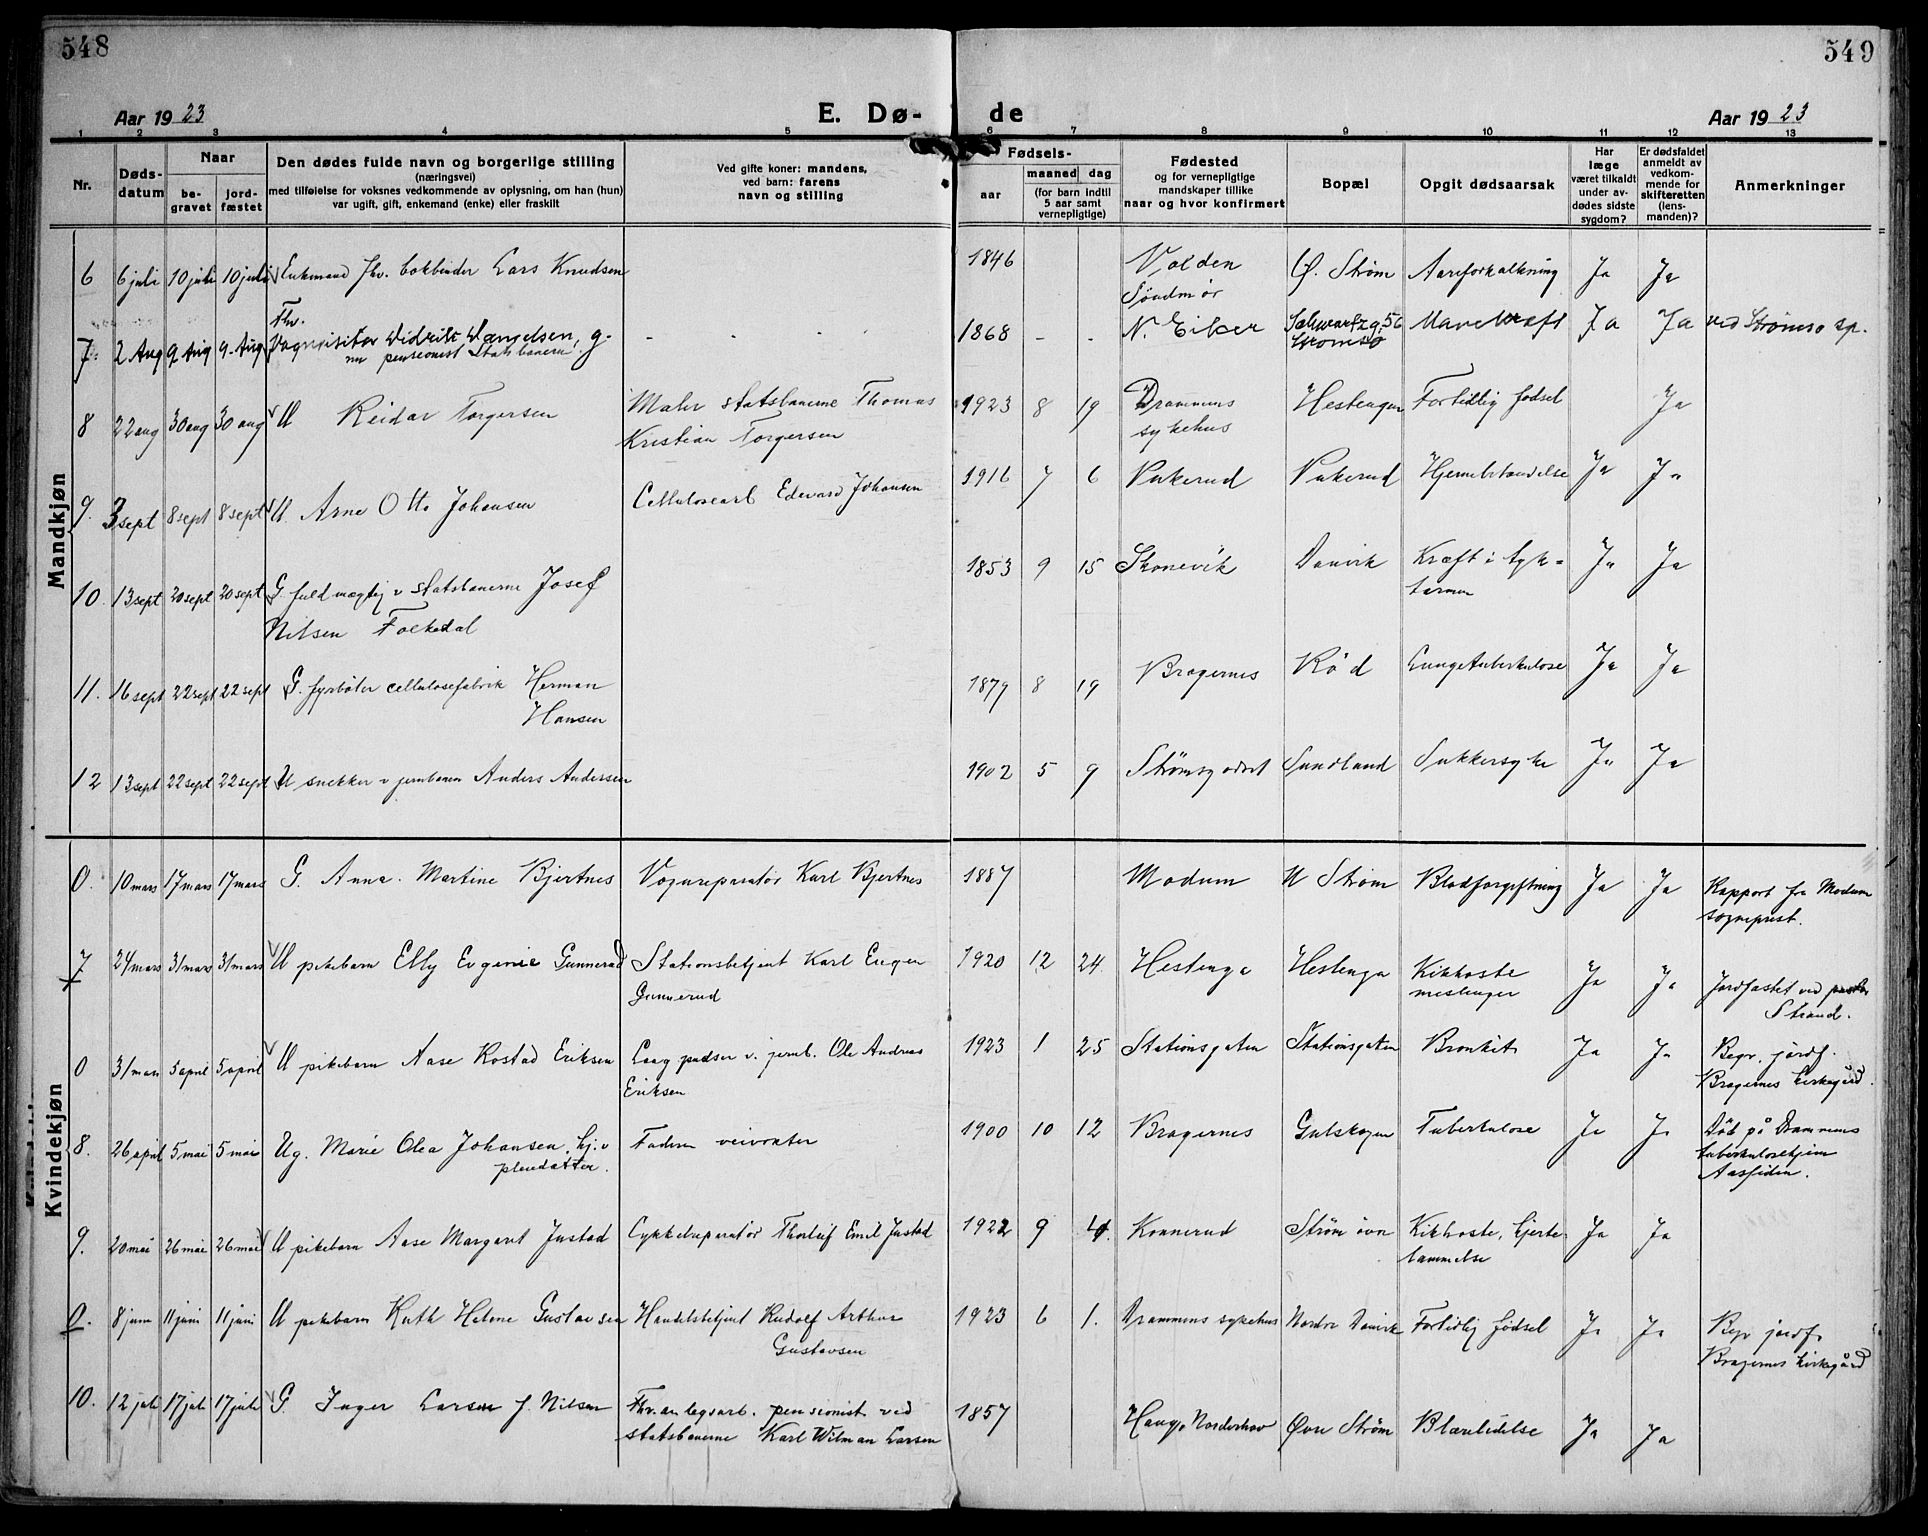 548
549
Aar 1923
E. Dø-
de
Aar 1923
1 2 3 4 5 6 7 8 9 10 11 12 13
Nr.
Døds-
datum
Naar
be-
gravet
jord-
fæstet
Den dødes fulde navn og borgerlige stilling
(næringsvei)
med tilføielse for voksnes vedkommende av oplysning, om han (hun)
var ugift, gift, enkemand (enke) eller fraskilt
Ved gifte koner: mandens,
ved barn: farens
navn og stilling
Fødsels-
aar
maaned
dag
(for barn indtil
5 aar samt
vernepligtige)
Fødested
og for vernepligtige
mandskaper tillike
naar og hvor konfirmert
Bopæl
Opgit dødsaarsak
Har
læge
været tilkaldt
under av-
dødes sidste
sygdom?
Er dødsfaldet
anmeldt av
vedkom-
mende for
skifteretten
(lens-
manden)?
Anmerkninger
Mandkjøn
6 6 juli 10 juli 10 juli Enkemand fhv. bokbinder Lars Knudsen 1846 Volden Ø. Strøm Aareforkalkning Ja Ja
Søndmør
Fhv.
7. 2 Aug 9 Aug 9. Aug Vognvisitør Didrik Wangelsen, g. - - 1868 - - N. Eiker Schwartzg. 56 Mavekræft Ja Ja ved Strømsø sp.
nu pensionist Statsbanerne Strømsø
8 22 aug 30 aug 30 aug U Reidar Torgersen Maler statsbanerne Thomas 1923 8 19 Drammens Hestengen Fortidlig fødsel Ja
Kristian Torgersen sykehus
9. 3 sept 8 sept 8 sept U. Arne Otto Johansen Cellulosearb. Edevard Johansen 1916 7 6 Vakerud Vakerud Hjernebetændelse Ja Ja
10. 13 sept 20 sept 20 sept G. fuldmægtig v statsbanerne Josef 1853 9 15 Skonevik Danvik Kræft i tyk- Ja Ja
Nilsen Folkedal tarmen
11. 16 sept 22 sept 22 sept G. fyrbøter cellulosefabrik Herman 1879 8 19 Bragernes Rød Lungetuberkulose Ja Ja
Hansen
12 13 sept 22 sept 22 sept U snekker v jernbanen Anders Andersen 1902 5 9 Strømsgodset Sundland Sukkersyke Ja Ja
Kvindekjøn
0. 10 mars 17 mars 17 mars G. Anna Martine Bjertnes Vognreparatør Karl Bjertnes 1887 Modum N Strøm Blodforgiftning Ja Ja Rapport fra Modum
sogneprest.
7 24 mars 31 mars 31 mars U pikebarn Elly Evgenie Gunnerud Stationsbetjent Karl Eugen 1920 12 24 Hestenga Hestenga Kikhoste Ja Ja Jordfæstet ved
Gunnerud meslinger Strand.
0 31 mars 5 april 5 april U pikebarn Aase Rostad Eriksen Vogpudser v. jernb. Ole Andreas 1923 1 25 Stationsgaten Stationsgaten Bronkit Ja Ja Begr. jordf.
Eriksen Bragernes kirkegård.
8. 26 april 5 mai 5 mai Ug. Marie Olea Johansen, hj.v Faderen veivokter 1900 10 12 Bragernes Gulskogen Tuberkulose Ja Ja Död på Drammens
pleiedatter. tuberkulosehjem
Aassiden.
9. 20 mai 26 mai 26 mai U pikebarn Aase Margaret Justad Cykkelreparatør Thorleif Emil Justad 1922 9 4. Konnerud Strøm övre Kikhoste, hjerte- Ja Ja
lammelse
0. 8 juni 11 juni 11 juni U pikebarn Ruth Helene Gustavsen Handelsbetjent Rudolf Arthur 1923 6 1. Drammens sykehus Nordre Danvik Fortidlig födsel Ja Ja Begr jordf.
Gustavsen Bragernes kirkegård
10. 12 juli 17 juli 17 juli G. Inger Larsen f. Nilsen Fhv. anlegsarb. pensionist ved 1857 Haug, Norderhov Øvre Strøm Blærelidelse Ja Ja
statsbanerne Karl Wilman Larsen